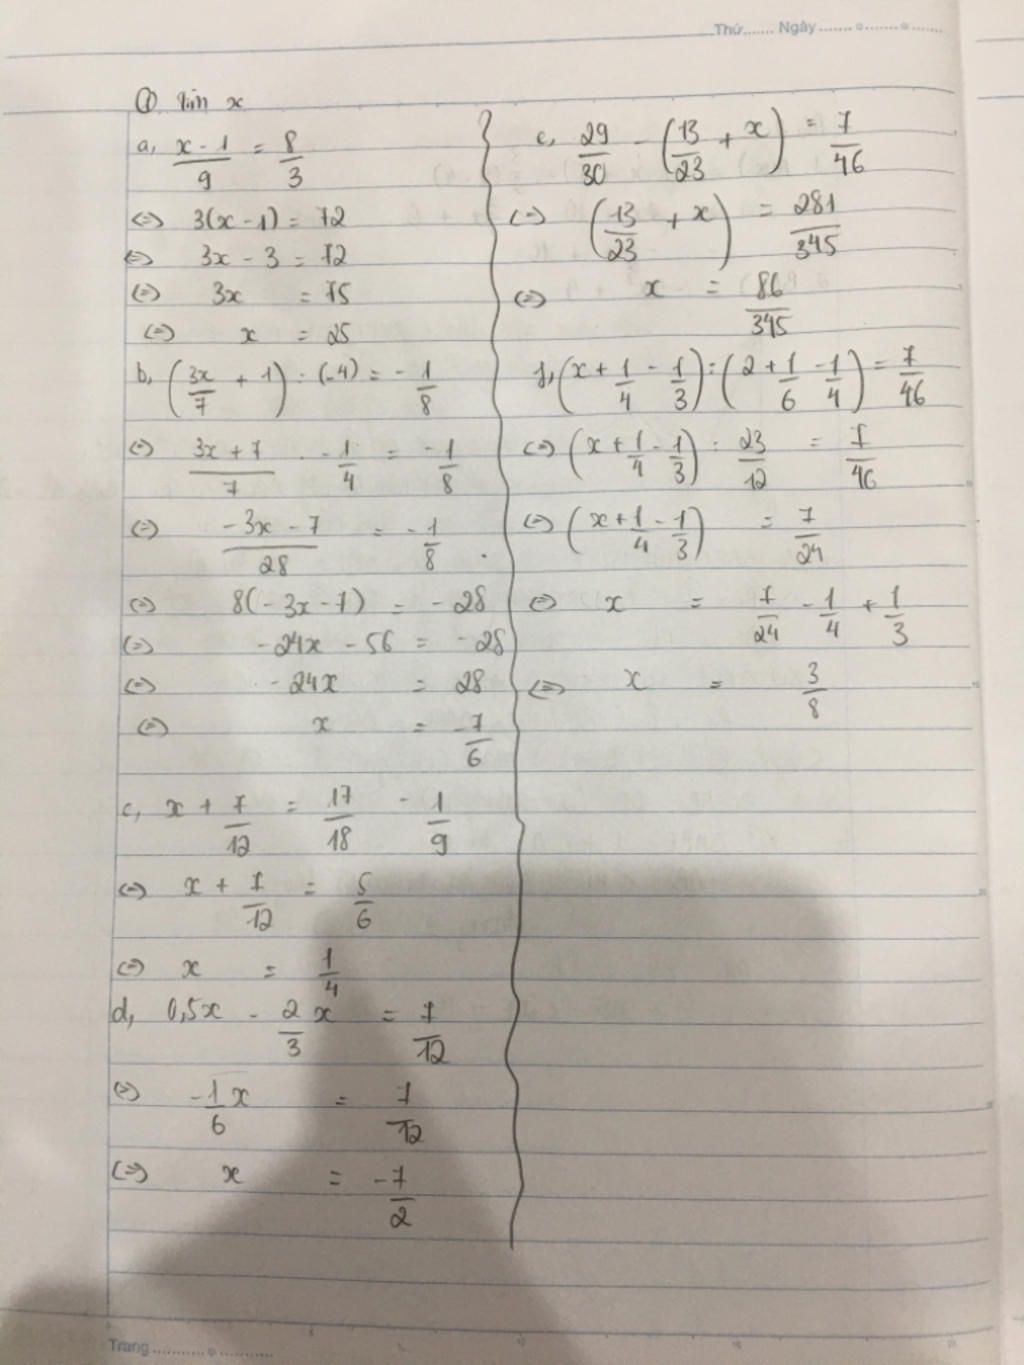 Thứ....... Ngày ....... o ....... o .......
① Tìm x
a, (x - 1)/9 = 8/3
(=) 3(x - 1) = 72
(=) 3x - 3 = 72
(=) 3x = 75
(=) x = 25
b, (3x/7 + 1) : (-4) = -1/8
(=) (3x + 7)/7 . -1/4 = -1/8
(=) (-3x - 7)/28 = -1/8
(=) 8(-3x - 7) = -28
(=) -24x - 56 = -28
(=) -24x = 28
(=) x = -7/6
c, x + 7/12 = 17/18 - 1/9
(=) x + 7/12 = 5/6
(=) x = 1/4
d, 0,5x - 2/3 x = 7/12
(=) -1/6 x = 7/12
(=) x = -7/2
e, 29/30 - (13/23 + x) = 7/46
(=) (13/23 + x) = 281/345
(=) x = 86/345
f, (x + 1/4 - 1/3) : (2 + 1/6 - 1/4) = 7/46
(=) (x + 1/4 - 1/3) : 23/12 = 7/46
(=) (x + 1/4 - 1/3) = 7/24
(=) x = 7/24 - 1/4 + 1/3
(=) x = 3/8
Trang ............ o ............